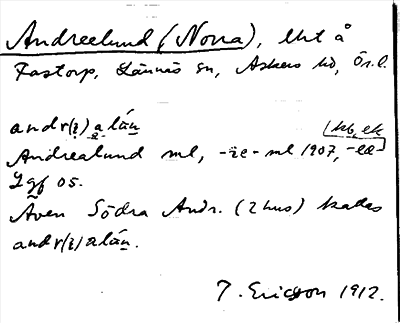 Andreelund (Norra), lht å
Fastorp, Lännäs sn, Askers hd, Ör. l.
andr(e) alún
[kb, ek
Andrealund ml, -ee- ml 1907, -ea-]
Lgf 05.
Även Södra Andr. (2 hus) kallas
andr(e) alún.
T. Ericsson 1912.